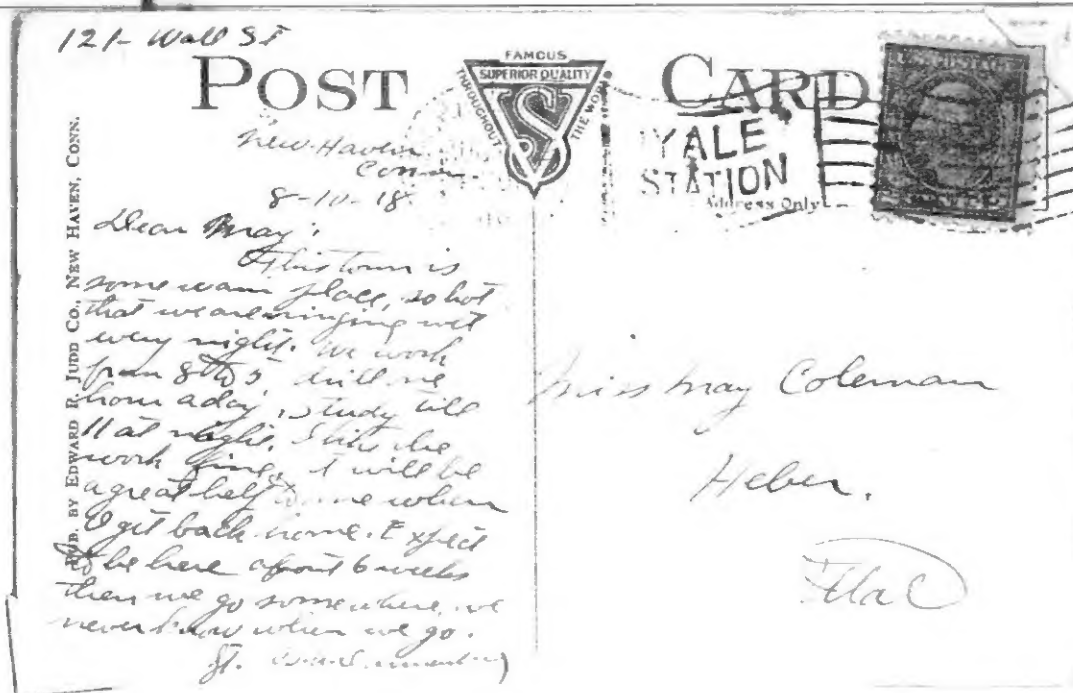 121- Wall St
POST CARD
FAMOUS
SUPERIOR QUALITY
THROUGHOUT THE WORLD
S
U.S. POSTAGE
YALE
STATION
Address Only
PUB. BY EDWARD R. JUDD CO., NEW HAVEN, CONN.
New Haven
Conn.
8-10-18
Dear May:
This town is
some warm place, so hot
that we are ringing wet
every night. We work
from 8 to 5, drill one
hour a day, study till
11 at night. I like the
work fine, it will be
a great help to me when
I get back home. Expect
to be here about 6 weeks
then we go somewhere, we
never know when we go.
Miss May Coleman
Heber.
Utah